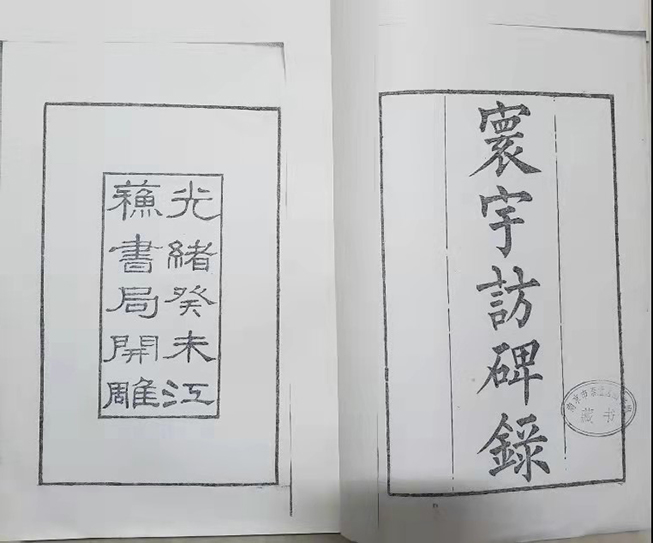 寰宇訪碑錄
藏书
光緒癸未江
蘓書局開雕